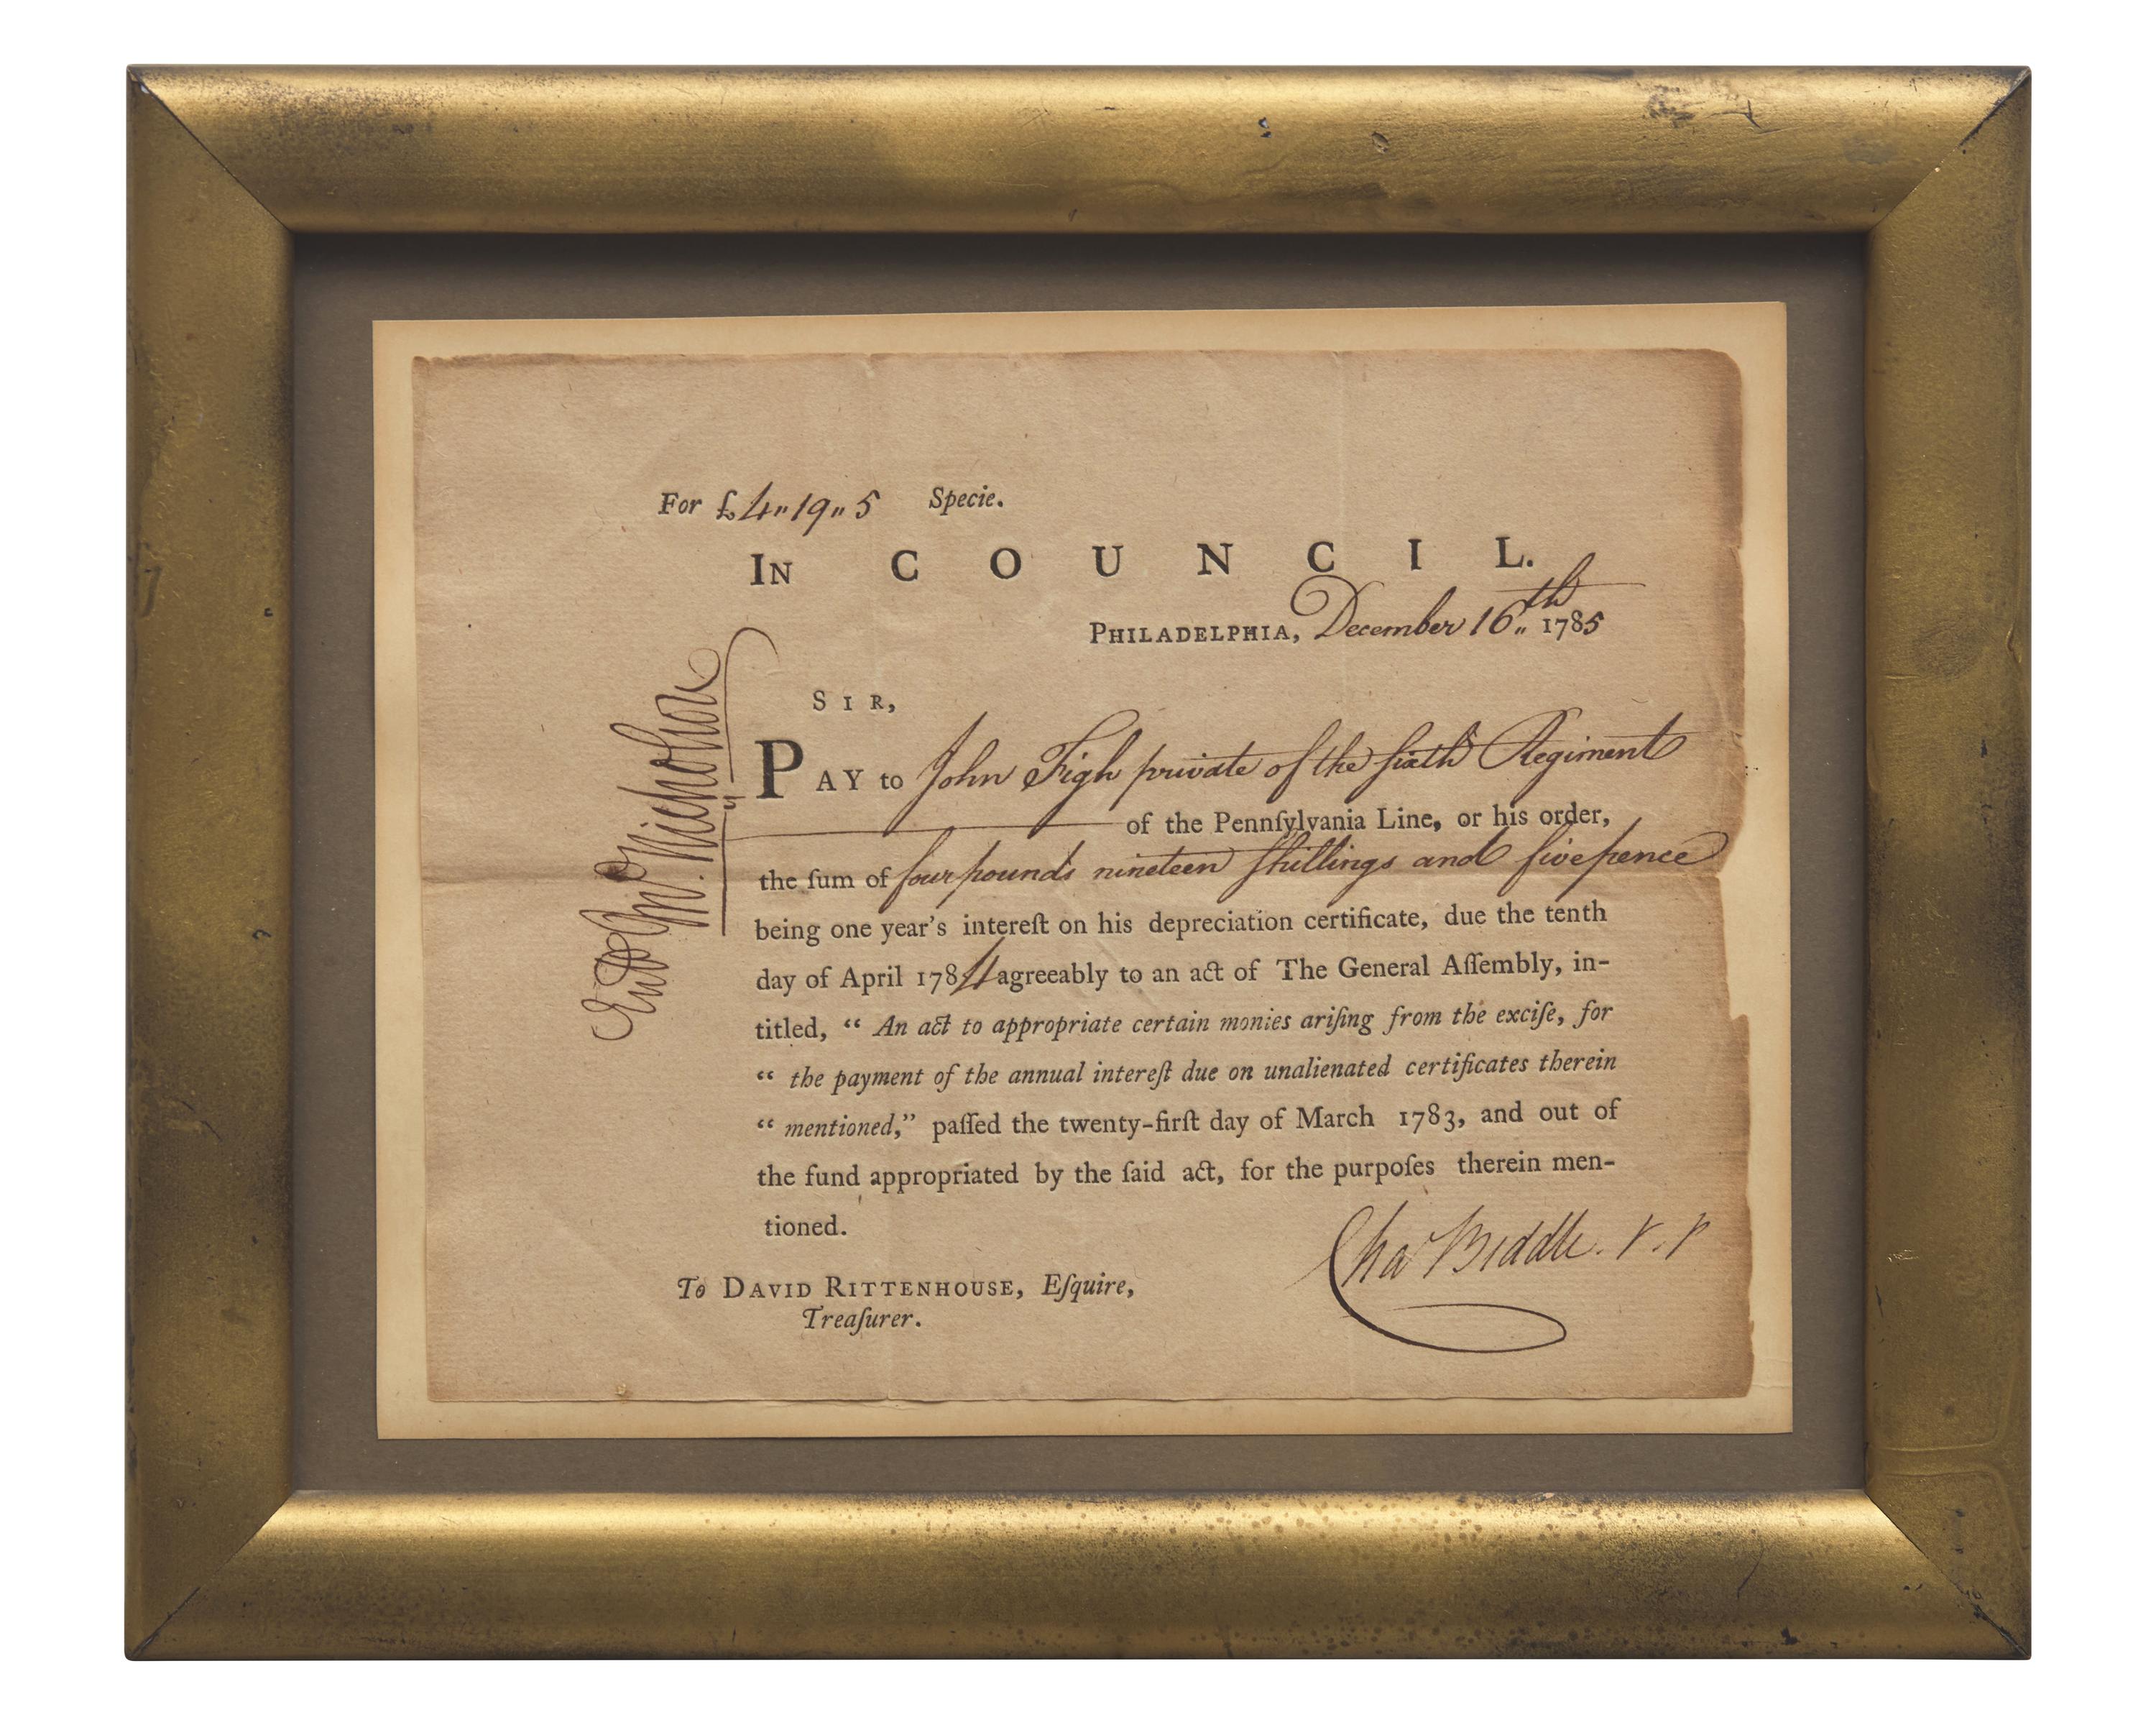 For £4„19„5 Specie.
IN COUNCIL.
PHILADELPHIA, December 16„th 1785
SIR,
PAY to John Figh private of the ſixth Regiment
of the Pennſylvania Line, or his order,
the ſum of four pounds nineteen ſhillings and five pence
being one year's intereſt on his depreciation certificate, due the tenth
day of April 1784 agreeably to an act of The General Aſſembly, in-
titled, “ An act to appropriate certain monies ariſing from the exciſe, for
“ the payment of the annual intereſt due on unalienated certificates therein
“ mentioned,” paſſed the twenty-firſt day of March 1783, and out of
the fund appropriated by the ſaid act, for the purpoſes therein men-
tioned.
Cha Biddle. V. P
To DAVID RITTENHOUSE, Eſquire,
Treaſurer.
Nicholson